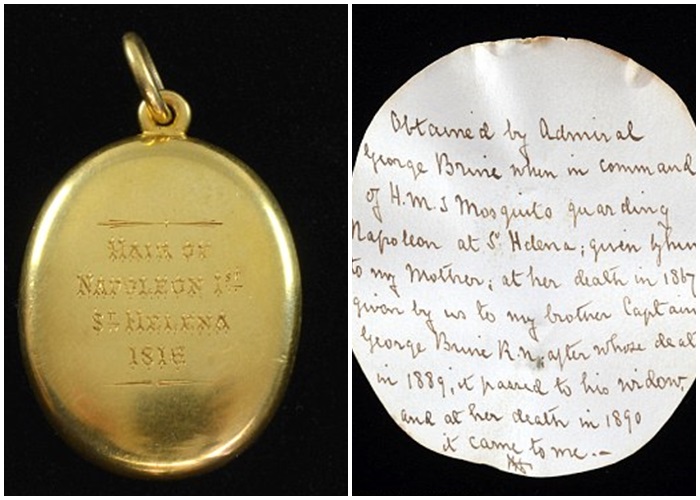 HAIR OF
NAPOLEON 1st
St HELENA
1816
Obtained by Admiral
George Brine when in command
of H.M.S Mosquito guarding
Napoleon at St Helena; given by him
to my Mother; at her death in 1867
given by us to my brother Captain
George Brine R.N. after whose death
in 1889, it passed to his widow,
and at her death in 1890
it came to me.—